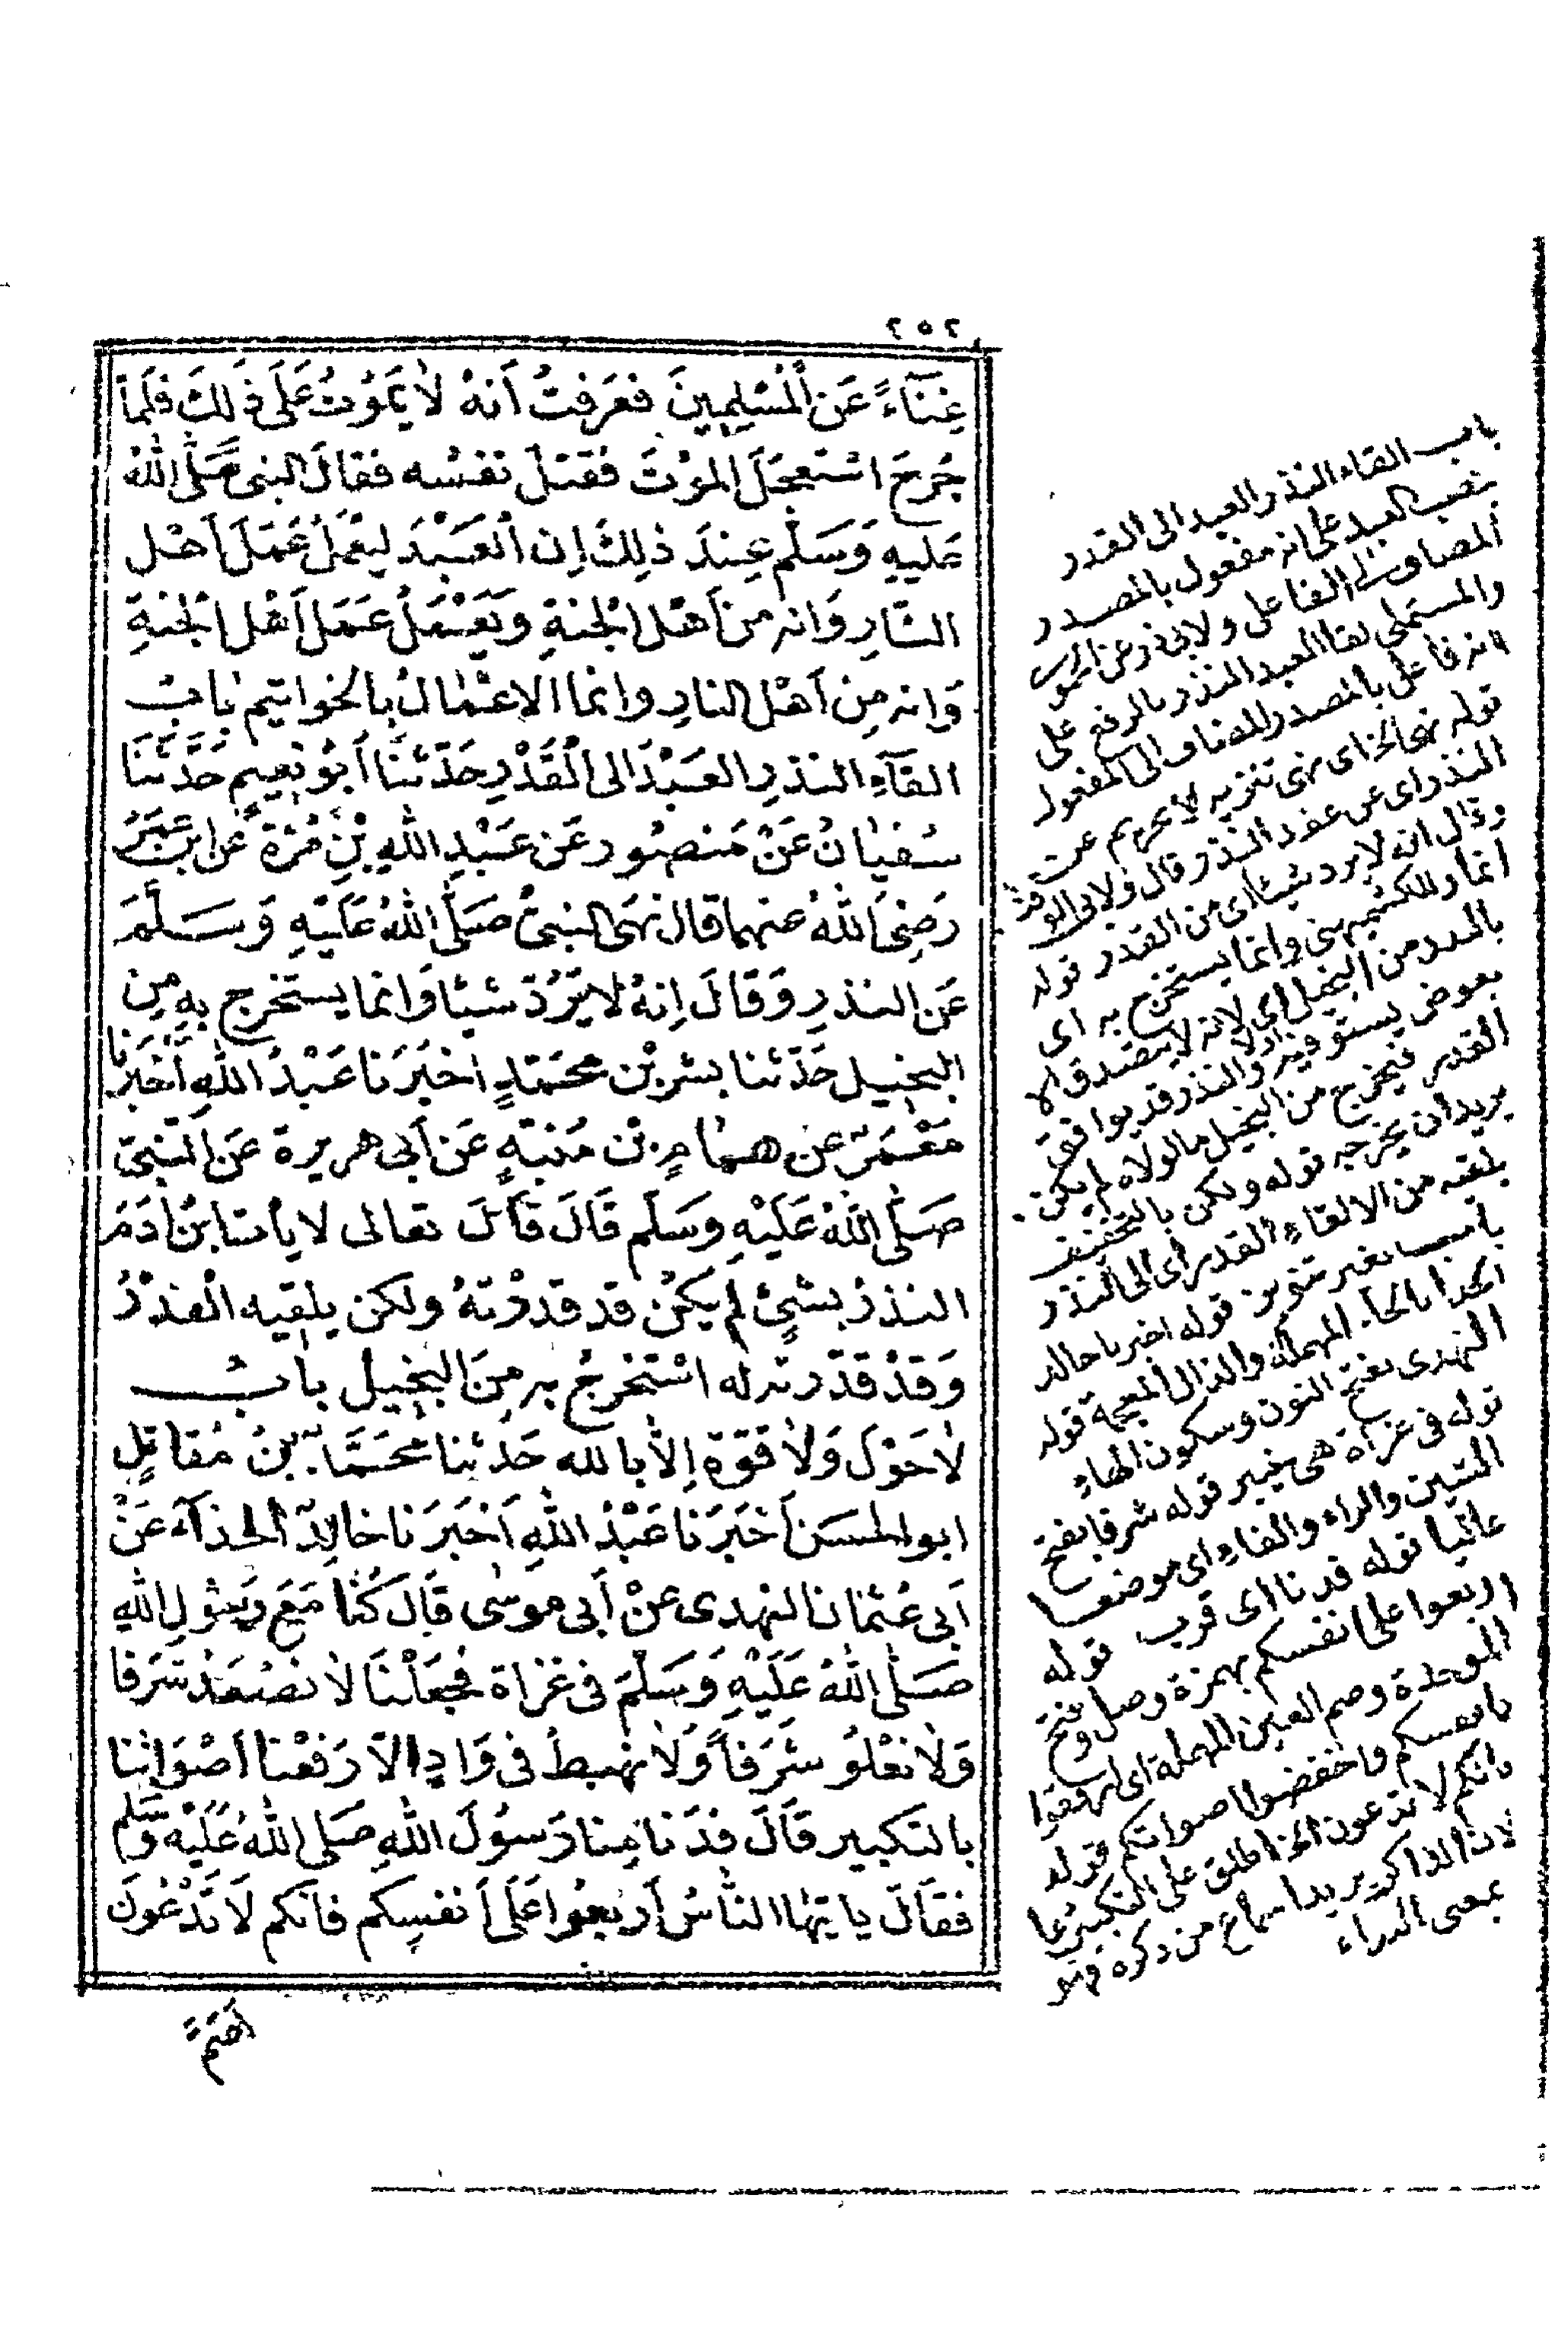 ٢٥٢
غِنَآءً عَنِ الْمُسْلِمِينَ فَعَرَفْتُ أَنَهُ لاٰ يَمُوْتُ عَلَى ذٰلِكَ فَلَمّا
جُرِحَ اسْتَعجَلَ المَوْتَ فَقَتَلَ نَفسُه فقالَ النبى صَلَّى اللهُ
عَليهِ وَسَلَّم عِندَ ذٰلِكَ اِن الْعَبْدَ لَيَعْمَلُ عَمَلَ اَهْل
النّارِ وَانه من اَهْل الْجَنةِ وَيَعْمَلُ عَمَل اَهْل الْجَنةِ
وَانه مِن اَهْل النارِ وانما الاعْمٰالُ بالخواتيم بٰابُ
القآءِ النذرِ العَبْدَ الى الْقَدْرِ حَدّثنَا أَبُو نعيم حَدَّثنَا
سُفيٰانُ عَنْ مَنصُورٍ عَن عَبْدِ اللهِ بْنِ مُرّةَ عن ابن عُمَرَ
رَضِىَ اللهُ عنهما قال نهَى النبىُّ صَلَّى اللهُ عَلَيْهِ وَسَلَّمَ
عَن النذرِ وَقَالَ اِنهُ لا يَرُدّ شيئا وَانما يستخرج بهِ مِن
البخيل حَدّثنا بشر بْن محَمّدٍ اخبَرَنا عَبْدُ اللهِ اَخْبَرنا
مَعْمَرٌ عن همٰامِ بْن مُنبّهٍ عَن أبى هريرة عَن النَّبىّ
صَلَّى اللهُ عَلَيْهِ وَسَلّم قَالَ قَالَ تعالى لا يأت ابنَ اٰدَمَ
النذرُ بشئٍ لم يَكُن قد قدرْتهُ ولكن يلقيه الْقدْرُ
وَقدْ قدّرته له اسْتَخْرجُ به مِنَ البَخيل بابُ
لاٰ حَوْلَ وَلاٰ قوّة اِلاّ بالله حَدثنا محَمَّد بْنُ مُقاتلٍ
ابو الحسَن أخبَرَنا عَبْدُ اللهِ اَخبَرَنا خالِدٌ الحذآء عَنْ
اَبى عُثمٰان النهدى عَنْ أبى موسٰى قَالَ كُنّا مَعَ رَسُول اللهِ
صَلَّى اللهُ عَلَيْهِ وَسَلّمَ فى غزاة فجَعَلْنَا لاٰ نصْعَدُ شَرَفا
وَلاٰ نعْلُو شَرَفاً وَلاٰ نهبطُ فى وَادٍ الاّ رَفعْنا اَصْوَاتنا
بالتكبير قَالَ فدَنا مِنا رَسُولَ اللهِ صَلى اللهُ عَلَيْه وَسَلّم
فقَالَ يا يّهٰا النّاسُ أربعُوا عَلَى أنفسِكم فانّكم لاَ تَدْعُونَ
اَصَمّ
باب القاء النذر العبد الى القدر
بنصب العبد على انه مفعول بالمصدر
المضاف الى الفاعل ولابى ذر عن الحموى
والمستملى لقا العبد النذر بالرفع على
انه فاعل بالمصدر المضاف الى المفعول
قوله نهى الخ اى نهى تنزيه لا تحريم عن
النذر اى عن عقد النذر قال ولابى الوقت
وقال انه لا يرد شيئا اى من القدر قوله
انما وللكشميهنى وانما يستخرج به اى
بالنذر من البخيل اى لانه لا يتصدق الا
بعوض يستوفيه اولا والنذر قد يوافق
القدر فيخرج من البخيل ما لولاه لم يكن
يريد ان يخرجه قوله ولكن بالتخفيف
يلقيه من الالقاء القدر اى الى النذر
باب بغير تنوين قوله اخبرنا خالد
الحذا بالحا المهملة والذال المعجمة قوله
النهدى بفتح النون وسكون الهاء
قوله فى غزاة هى خيبر قوله شرفا بفتح
الشين والراء والفاء اى موضعا
عاليا قوله فدنا اى قرب قوله
اربعوا على انفسكم بهمزة وصل وفتح
الموحدة وضم العين المهملة اى ارفقوا
بانفسكم واخفضوا اصواتكم قوله
فانكم لا تدعون الخ اطلق على التكبير دعا
لان الذاكر يريد اسماع من ذكره فهو
بمعنى النداء